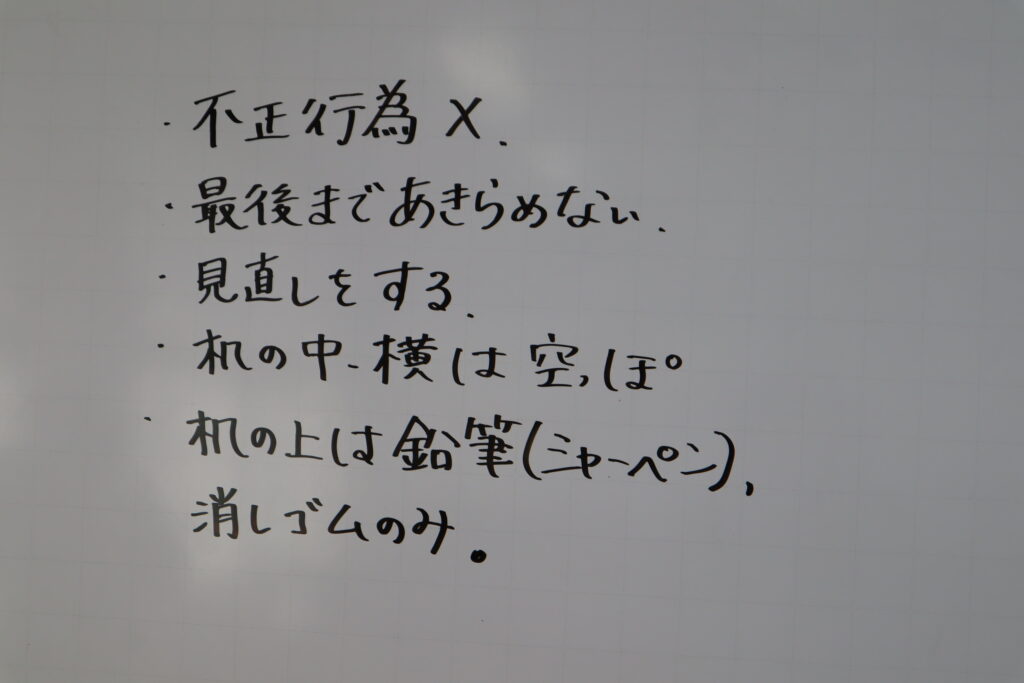 ・不正行為 X.
・最後まであきらめない.
・見直しをする.
・机の中、横は空っぽ
・机の上は鉛筆(シャーペン),
消しゴムのみ。